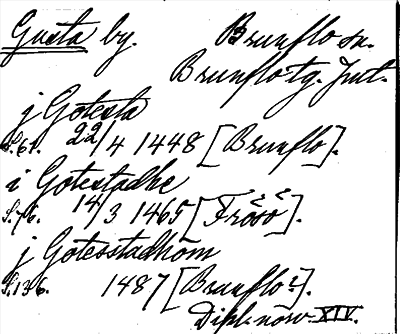 Gusta by. Brunflo sn.
Brunflo tg. Jmt.
j Gotesta
S.61. 22/4 1448 [Brunflo].
i Gotestadhe
S.76. 14/3 1465 [Frösö].
j Gotesstadhom
S.136. 1487 [Brunflo?].
Dipl. norv. XIV.